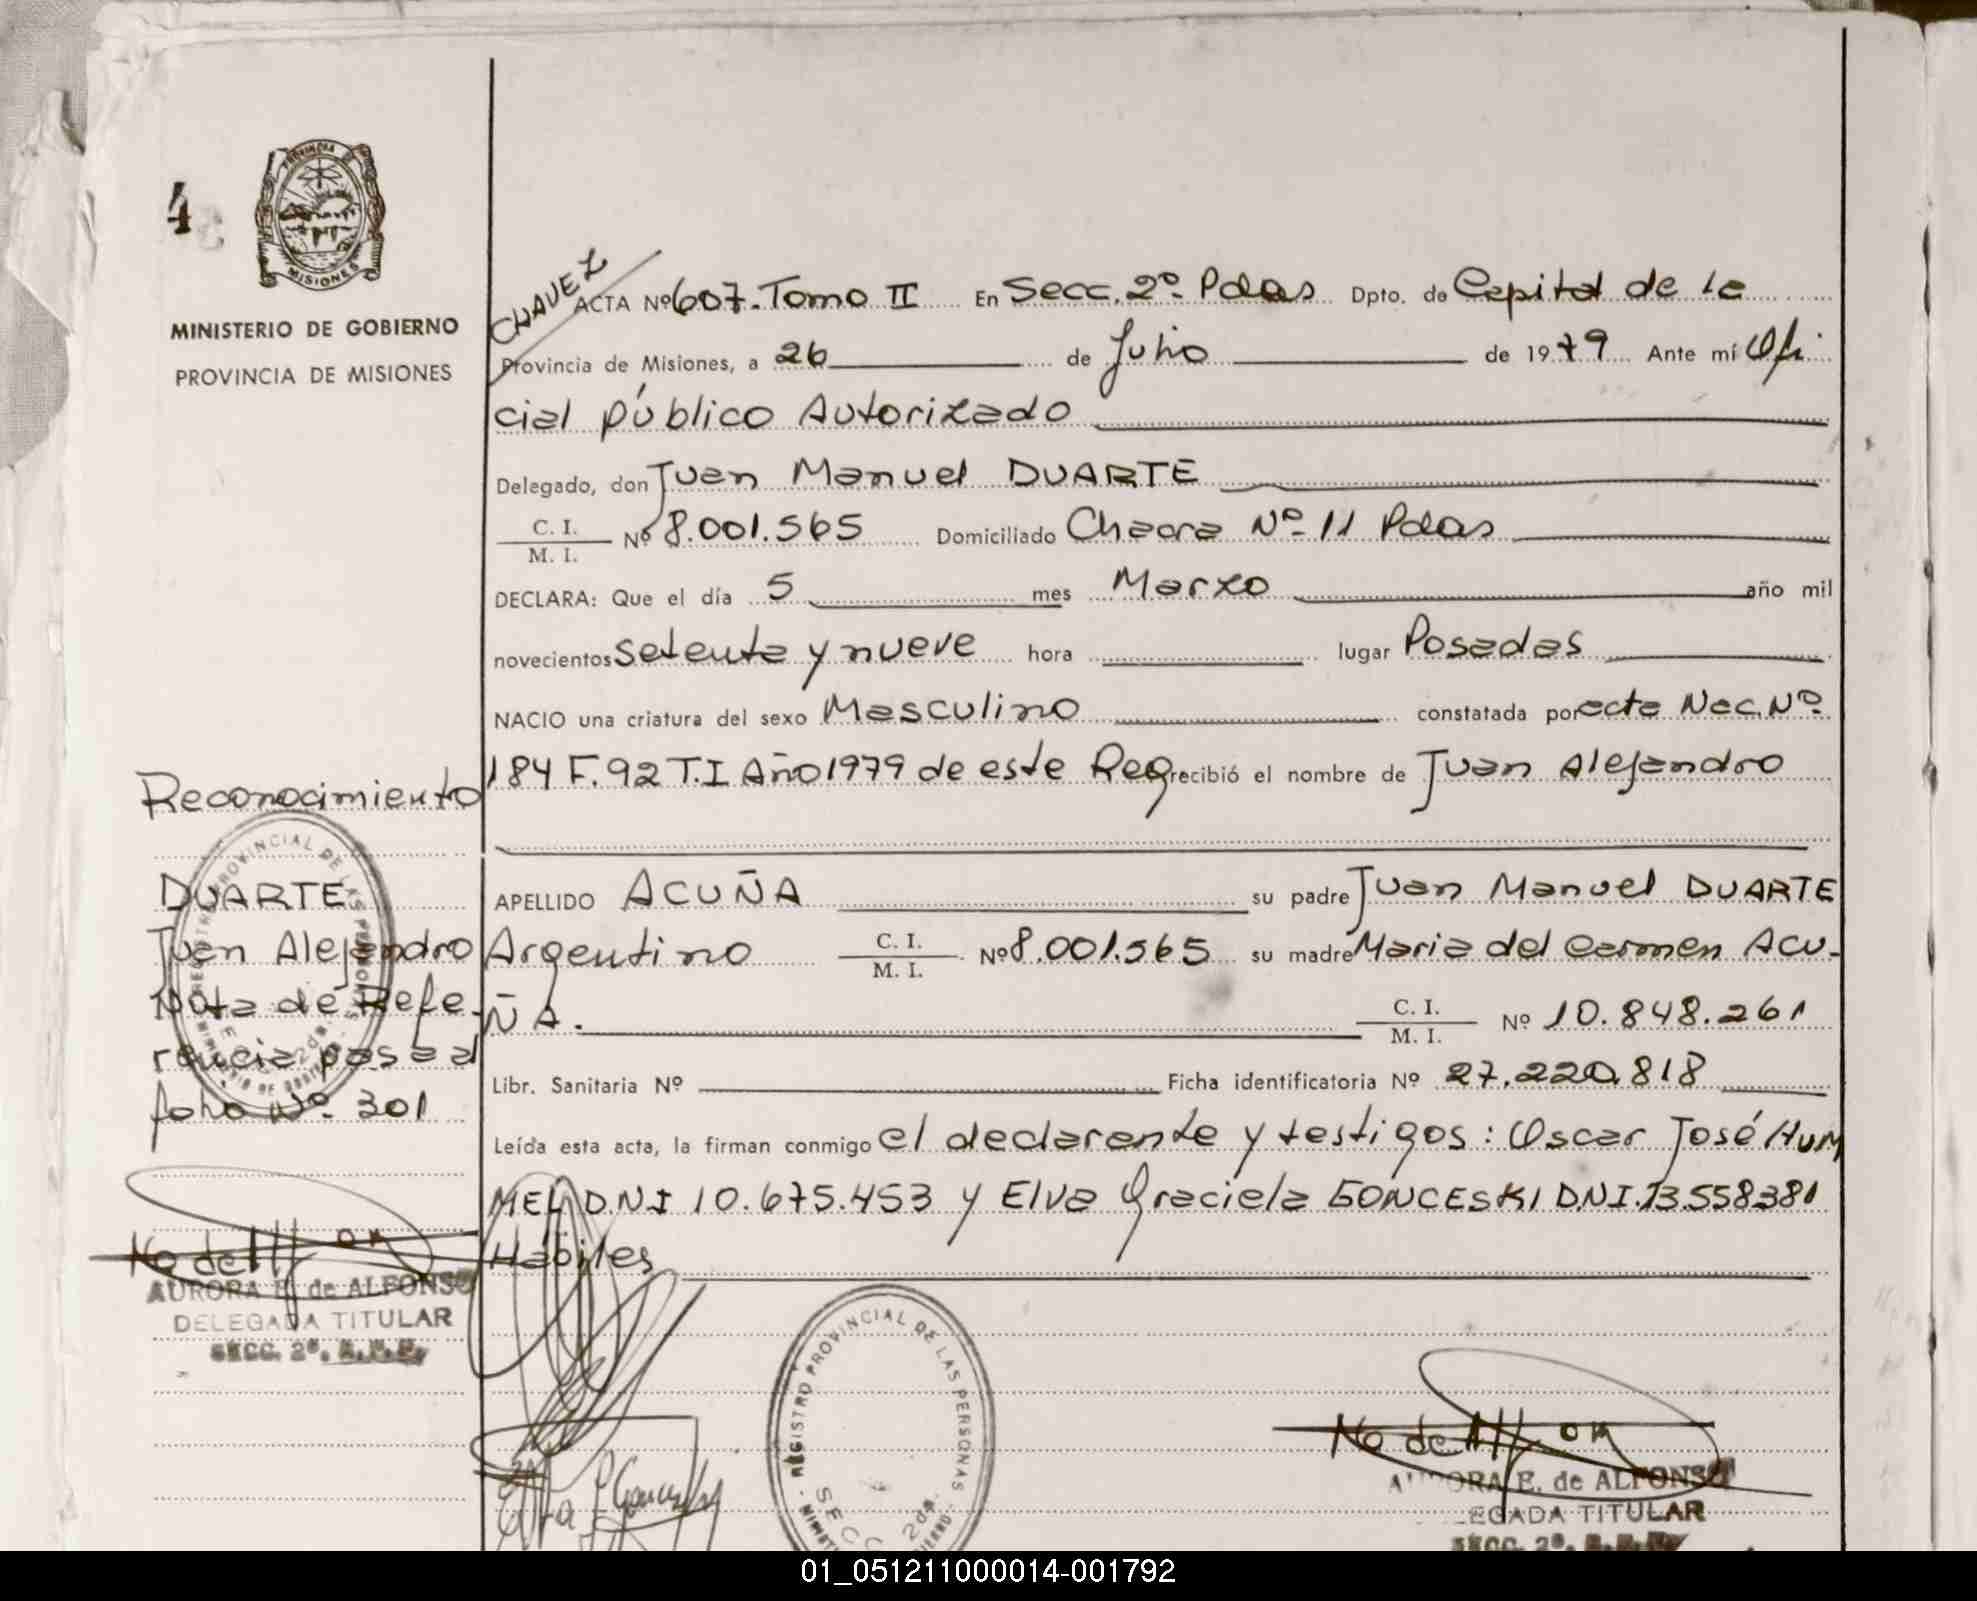 4
PROVINCIA DE
MISIONES
MINISTERIO DE GOBIERNO
PROVINCIA DE MISIONES
CHAVEZ
ACTA Nº 607. Tomo II En Secc. 2º Pdas Dpto. de Capital de la
Provincia de Misiones, a 26 de Julio de 1979 Ante mí Ofi
cial público Autorizado
Delegado, don Juan Manuel DUARTE
C. I.
M. I. Nº 8.001.565 Domiciliado Chacra Nº 11 Pdas
DECLARA: Que el día 5 mes Marzo año mil
novecientos setenta y nueve hora lugar Posadas
NACIO una criatura del sexo Masculino constatada por acta Nac. Nº
184 F. 92 T. I Año 1979 de este Reg recibió el nombre de Juan Alejandro
APELLIDO ACUÑA su padre Juan Manuel DUARTE
Argentino C. I.
M. I. Nº 8.001.565 su madre Maria del Carmen ACU-
ÑA. C. I.
M. I. Nº 10.848.261
Libr. Sanitaria Nº Ficha identificatoria Nº 27.220.818
Leída esta acta, la firman conmigo el declarante y testigos: Oscar José HUM
MEL D.N.I 10.675.453 y Elva Graciela GONCESKI D.N.I. 13.558381
Hábiles
Reconocimiento
DUARTE
Juan Alejandro
Nota de Refe-
rencia pasa al
folio Nº 301
REGISTRO PROVINCIAL DE LAS PERSONAS
AURORA E. de ALFONSO
DELEGADA TITULAR
SECC. 2ª. R.P.P.
REGISTRO PROVINCIAL DE LAS PERSONAS
SECC 2da.
AURORA E. de ALFONSO
LEGADA TITULAR
SECC. 2ª. R.P.P.
01_051211000014-001792